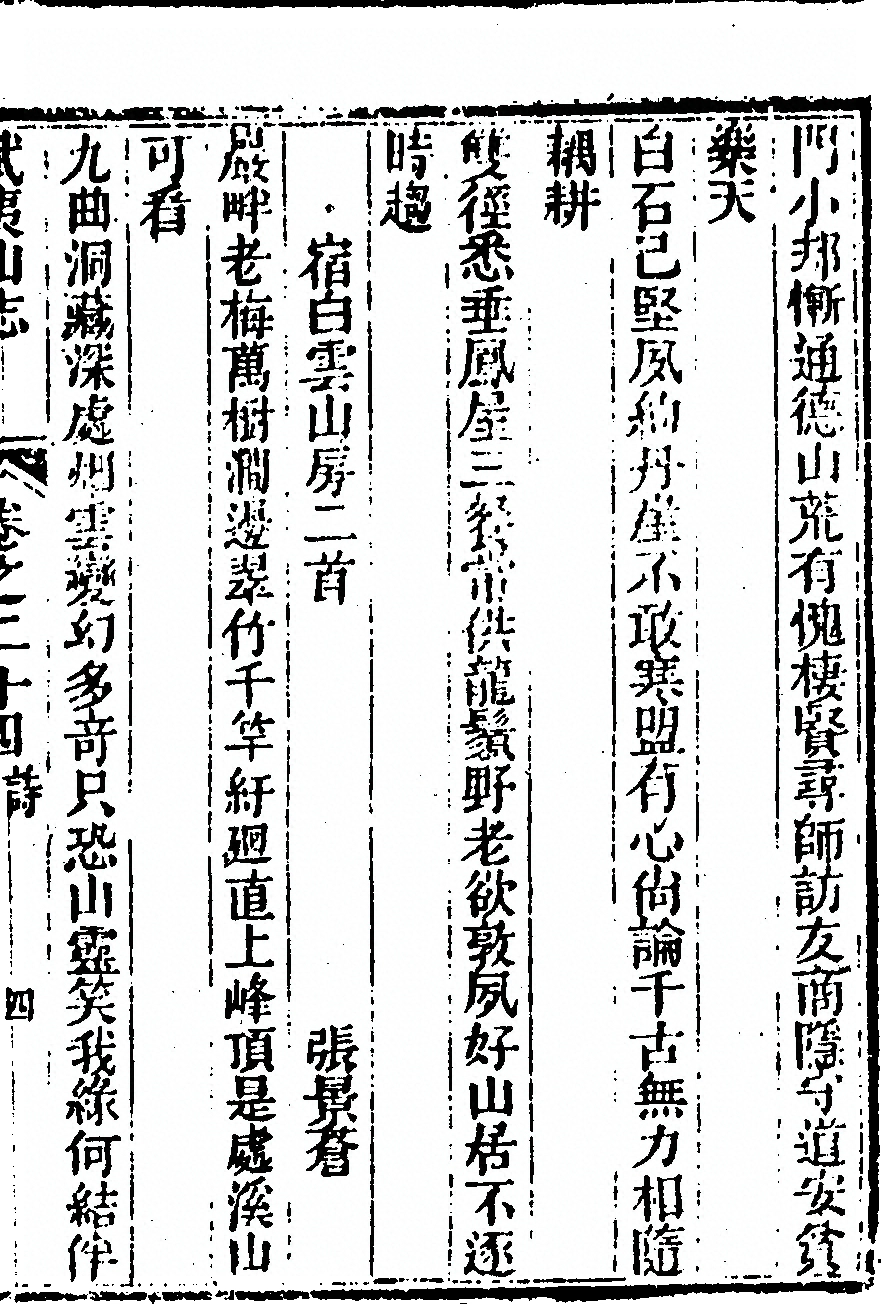 門小邦慚通德山荒有愧棲賢尋師訪友商隱守道安貧
樂天
白石已堅夙約丹崖不敢寒盟有心尚論千古無力相隨
耦耕
雙徑悉垂鳳尾三餐常供龍鬚野老欲敦夙好山居不逐
時趨
宿白雲山房二首　張景蒼
巖畔老梅萬樹澗邊翠竹千竿紆廻直上峰頂是處溪山
可看
九曲洞藏深處烟雲變幻多奇只恐山靈笑我緣何結伴
武夷山志　卷之二十四　詩　四